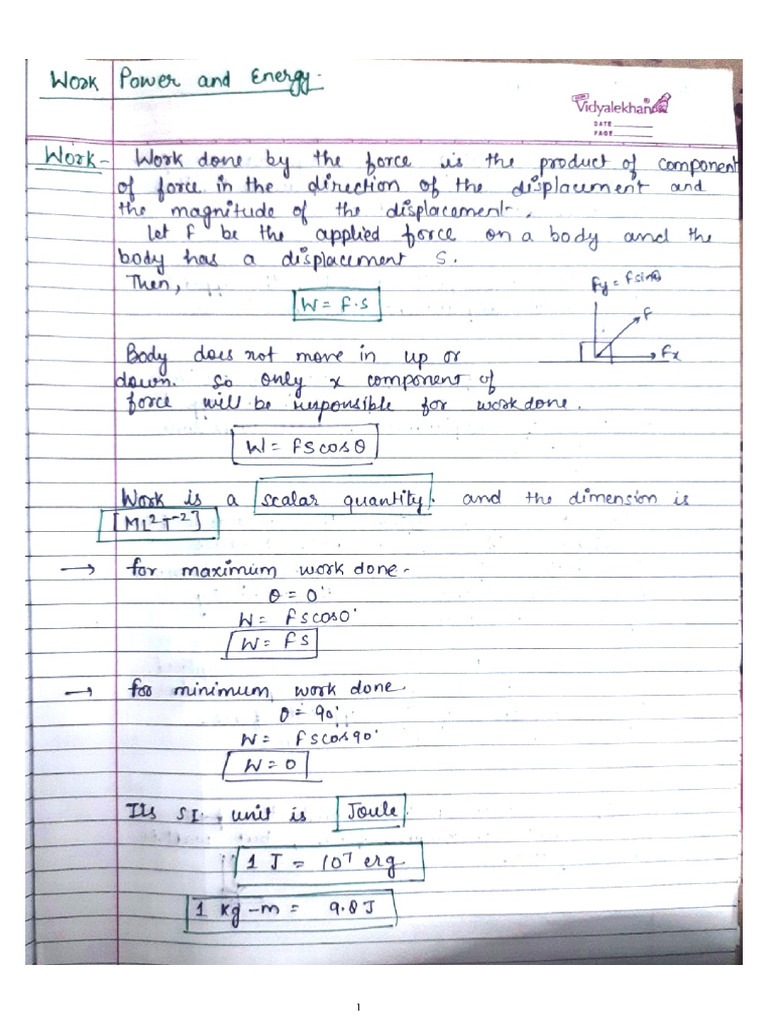 Work Power and Energy.
Vidyalekhan
DATE
PAGE
Work - Work done by the force is the product of component
of force in the direction of the displacement and
the magnitude of the displacement.
let F be the applied force on a body and the
body has a displacement S.
Then,
W = F.S
Fy = F sinθ
F
Fx
Body does not move in up or
down. So only x component of
force will be responsible for work done.
W = FS cos θ
Work is a scalar quantity. and the dimension is
[ML²T⁻²]
→ for maximum work done -
θ = 0°
W = FS cos 0°
W = FS
→ for minimum work done.
θ = 90°
W = FS cos 90°
W = 0
Its SI unit is Joule.
1 J = 10⁷ erg
1 kg-m = 9.8 J
1